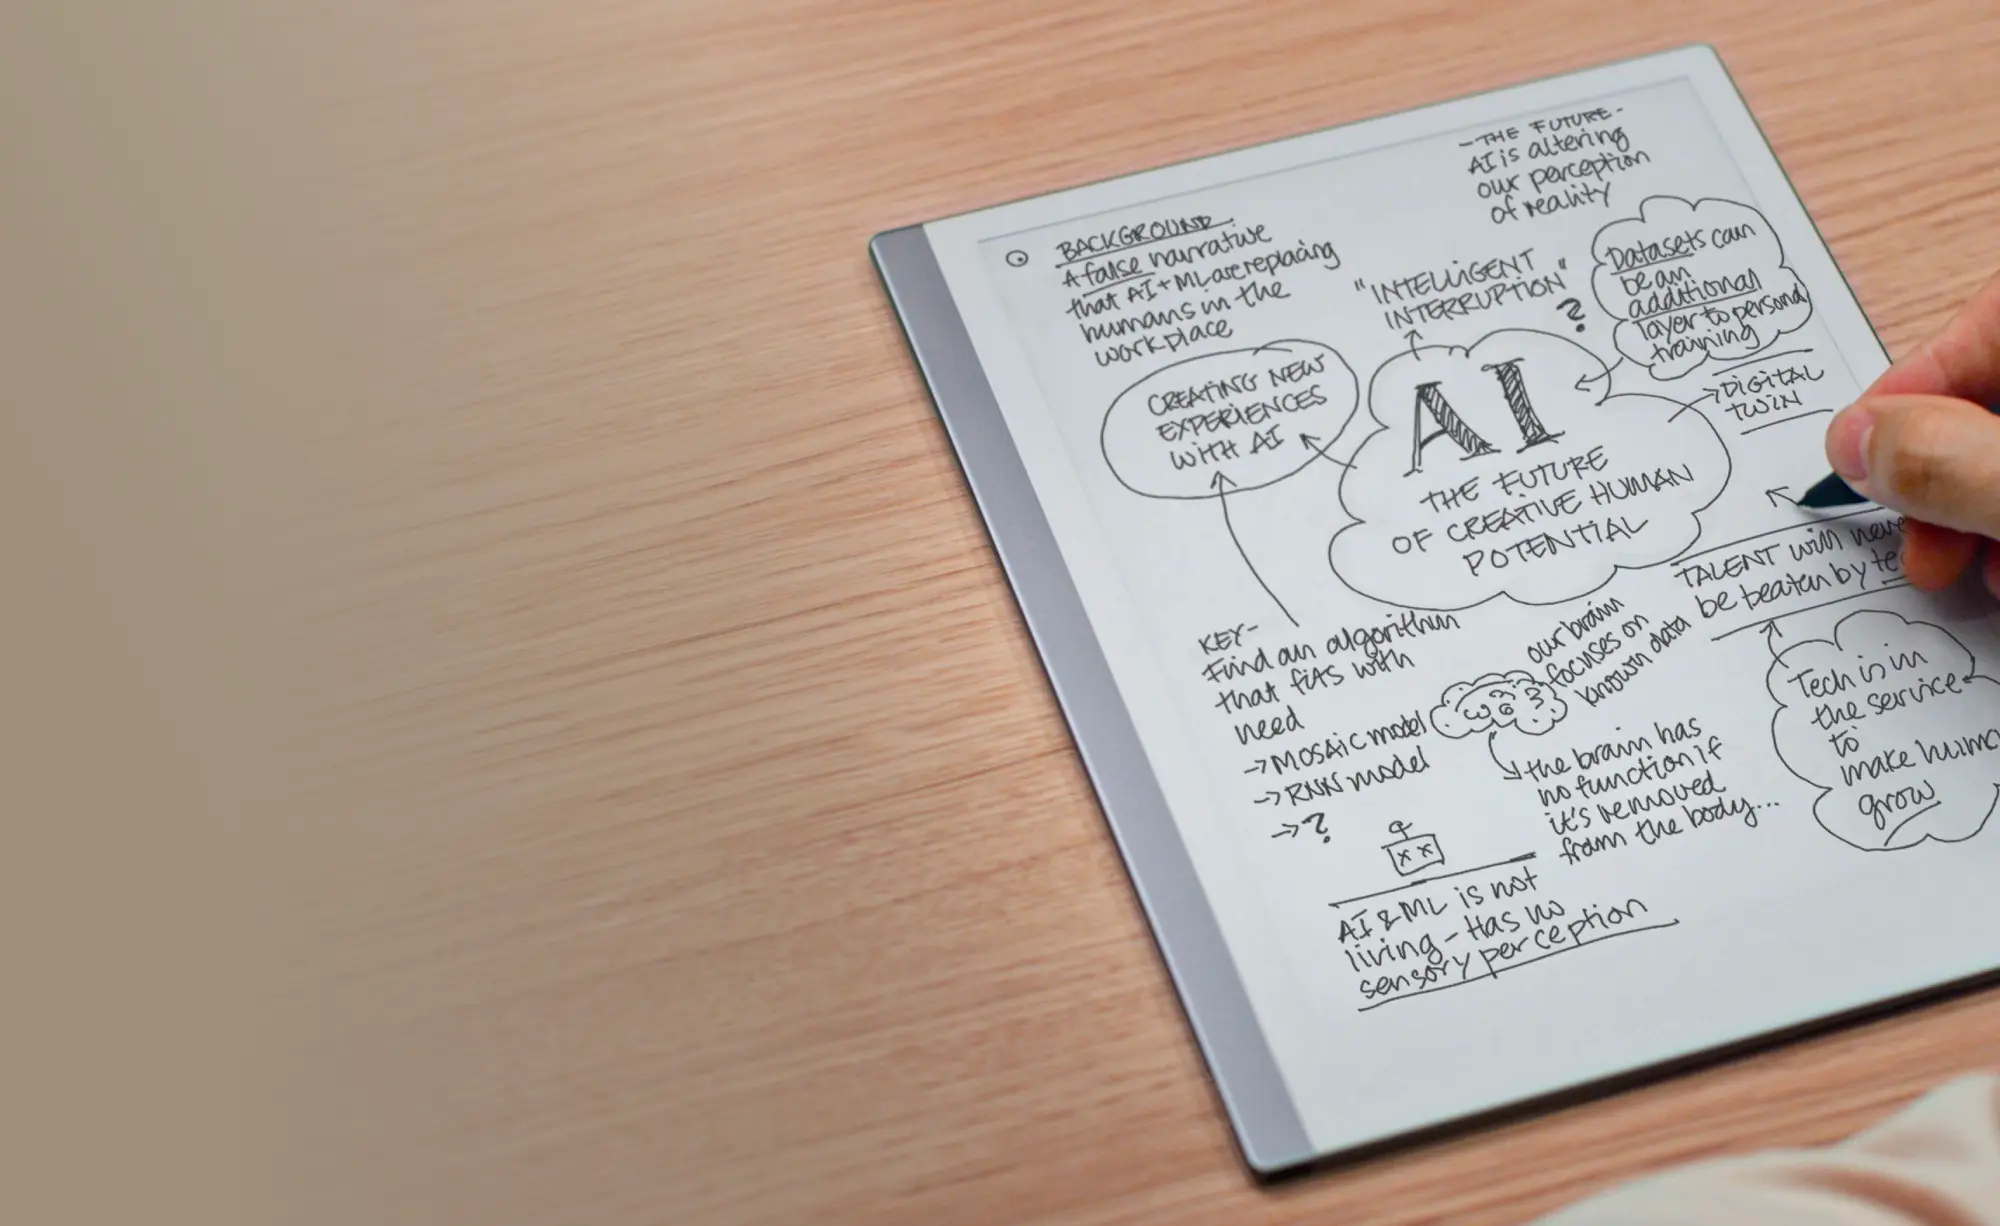 - THE FUTURE -
AI is altering
our perception
of reality
BACKGROUND
A false narrative
that AI + ML are replacing
humans in the
workplace
"INTELLIGENT
INTERRUPTION"
?
Datasets can
be an
additional
layer to personal
training
CREATING NEW
EXPERIENCES
WITH AI
AI
THE FUTURE
OF CREATIVE HUMAN
POTENTIAL
→ DIGITAL
TWIN
TALENT will
be beaten by
KEY-
Find an algorithm
that fits with
need
→ MOSAIC model
→ RNN model
→ ?
our brain
focuses on
known data
the brain has
no function if
it's removed
from the body...
Tech is in
the service
to
make
grow
AI & ML is not
living - Has no
sensory perception